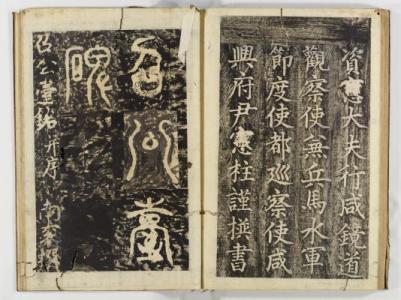 資憲大夫行咸鏡道
觀察使兼兵馬水軍
節度使都巡察使咸
興府尹憲柱謹書
召公臺
碑
召公臺銘并序